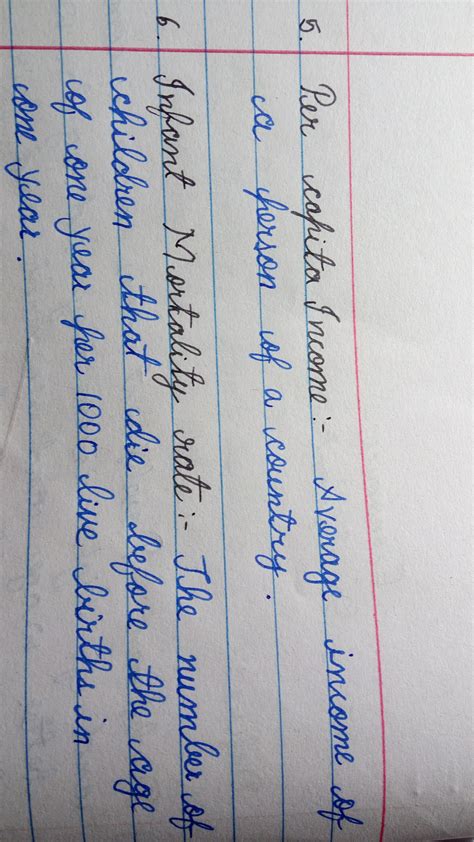 5. Per capita Income:- Average income of
a person of a country.
6. Infant Mortality rate:- The number of
children that die before the age
of one year per 1000 live births in
one year.